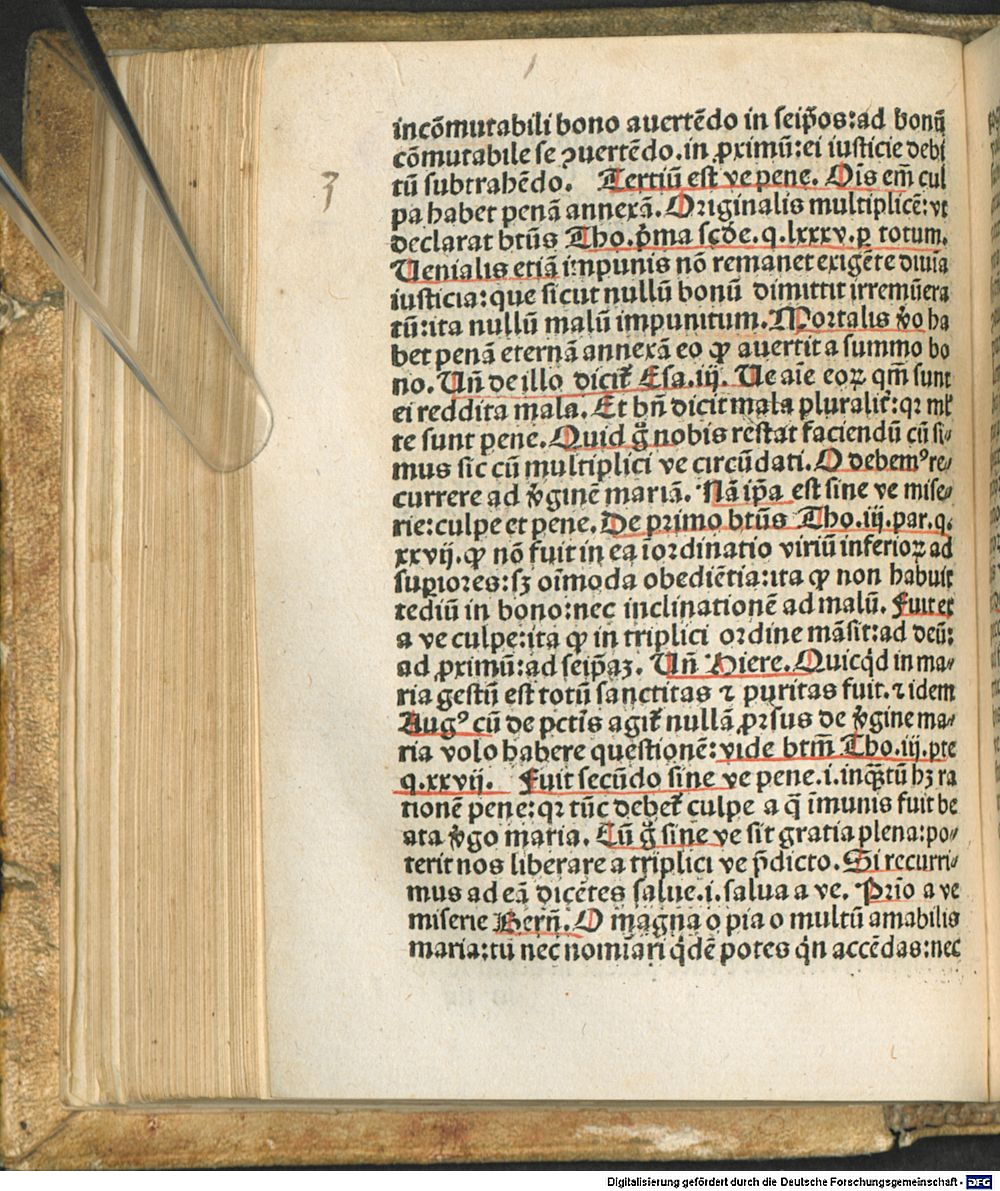 3
incõmutabili bono auertẽdo in seip̃os:ad bonũ
cõmutabile se ꝯuertẽdo.in ꝓximũ:ei iusticie debi
tũ subtrahẽdo. Tertiũ est ve pene. Oĩs em̃ cul
pa habet penã annexã. Originalis multiplicẽ:vt
declarat btũs Tho.p̃ma scđe.q.lxxxv.ꝑ totum.
Uenialis etiã impunis nõ remanet exigẽte diuĩa
iusticia:que sicut nullũ bonũ dimittit irremũera
tũ:ita nullũ malũ impunitum. Mortalis ꝟo ha
bet penã eternã annexã eo ꝙ auertit a summo bo
no. Uñ de illo dicit᷑ Esa.iij. Ue aĩe eoꝝ qm̃ sunt
ei reddita mala. Et bñ dicit mala pluralit᷑:qꝛ ml᷑
te sunt pene. Quid g̃ nobis restat faciendũ cũ si⸗
mus sic cũ multiplici ve circũdati. O debemꝰ re⸗
currere ad ꝟginẽ mariã. Nã ip̃a est sine ve mise⸗
rie:culpe et pene. De primo btũs Tho.iij.par.q.
xxvij.ꝙ nõ fuit in ea iordinatio viriũ inferioꝝ ad
suꝑiores:sꝫ oĩmoda obediẽtia:ita ꝙ non habuit
tediũ in bono:nec inclinationẽ ad malũ. Fuit et
a ve culpe:ita ꝙ in triplici ordine mãsit:ad deũ:
ad ꝓximũ:ad seip̃aꝫ. Uñ Hiere. Quicq̇d in ma⸗
ria gestũ est totũ sanctitas ⁊ puritas fuit.⁊ idem
Augꝰ cũ de pctĩs agit᷑ nullã ꝓrsus de ꝟgine ma⸗
ria volo habere questionẽ:vide btm̃ Tho.iij.pte
q.xxvij. Fuit secũdo sine ve pene.i.inqᷓtũ hꝫ ra
tionẽ pene:qꝛ tũc debet᷑ culpe a q̃ ĩmunis fuit be
ata ꝟgo maria. Cũ g̃ sine ve sit gratia plena:po⸗
terit nos liberare a triplici ve p̃dicto. Si recurri⸗
mus ad eã dicẽtes salue.i.salua a ve. Prĩo a ve
miserie Berñ. O magna o pia o multũ amabilis
maria:tu nec nomĩari q̇dẽ potes q̇n accẽdas:nec
Digitalisierung gefördert durch die Deutsche Forschungsgemeinschaft - DFG